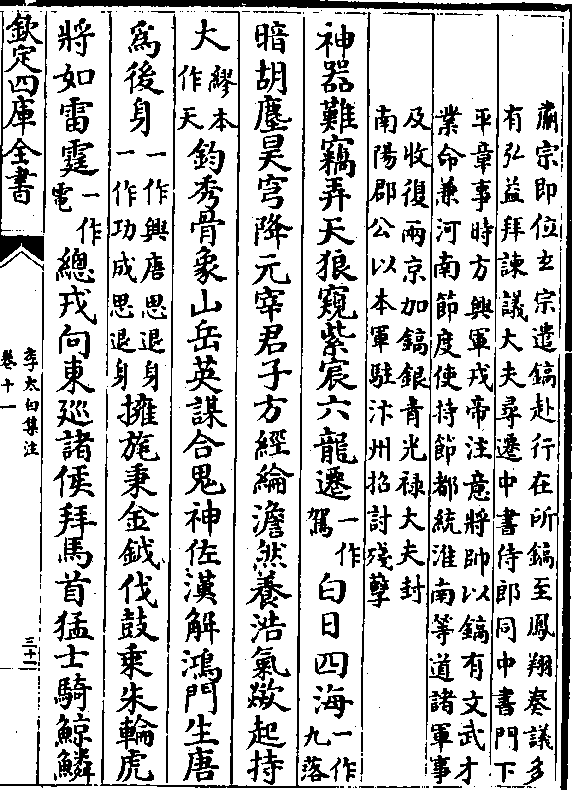 肅宗即位玄宗遣鎬赴行在所鎬至鳳翔奏議多
有弘益拜諫議大夫尋遷中書侍郎同中書門下
平章事時方興軍戎帝注意將帥以鎬有文武才
業命兼河南節度使持節都統淮南等道諸軍事
及收復兩京加鎬銀青光禄大夫封
南陽郡公以本軍駐汴州招討殘孽
神器難竊弄天狼窺紫宸六龍遷一作駕白日四海一作九落
暗胡塵昊穹降元宰君子方經綸澹然養浩氣歘起持
大繆本作天鈞秀骨象山岳英謀合鬼神佐漢解鴻門生唐
為後身一作興唐思退身一作功成思退身擁旄秉金鉞伐鼓乘朱輪虎
將如雷霆一作電總戎向東廵諸侯拜馬首猛士騎鯨鱗
欽定四庫全書
李太白集注
卷十一
三十二